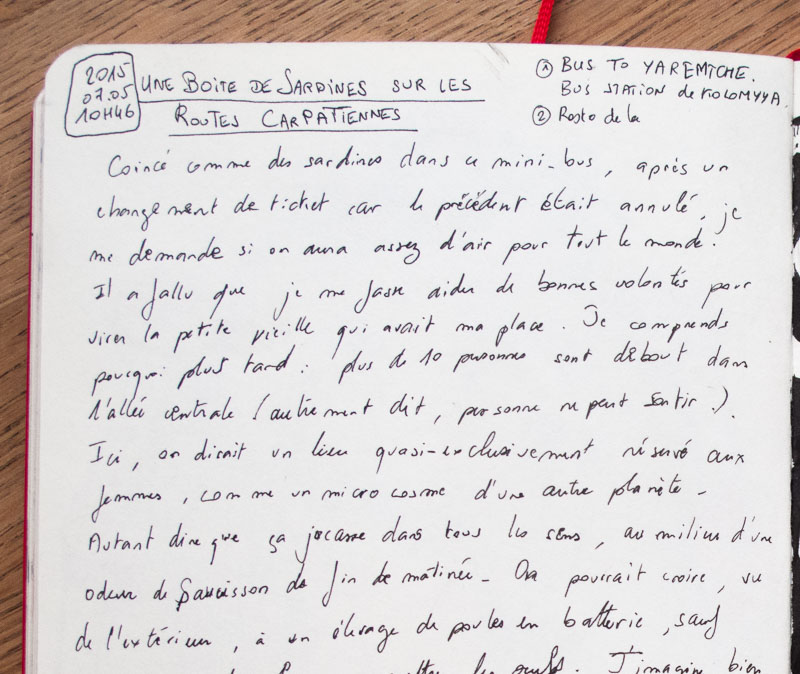 2015
07.05
10H46
UNE BOITE DE SARDINES SUR LES
ROUTES CARPATIENNES
① BUS TO YAREMTCHE.
BUS STATION de KOLOMYYA.
② Resto de la
Coincé comme des sardines dans ce mini-bus, après un
changement de ticket car le précédent était annulé, je
me demande si on aura assez d'air pour tout le monde.
Il a fallu que je me fasse aider de bonnes volontés pour
virer la petite vieille qui avait ma place. Je comprends
pourquoi plus tard : plus de 10 personnes sont debout dans
l'allée centrale (autrement dit, personne ne peut sortir !).
Ici, on dirait un lieu quasi-exclusivement réservé aux
femmes, comme un microcosme d'une autre planète -
Autant dire que ça jacasse dans tous les sens, au milieu d'une
odeur de saucisson de fin de matinée - On pourrait croire, vu
de l'extérieur, à un élevage de poules en batterie, sauf
les oeufs. J'imagine bien